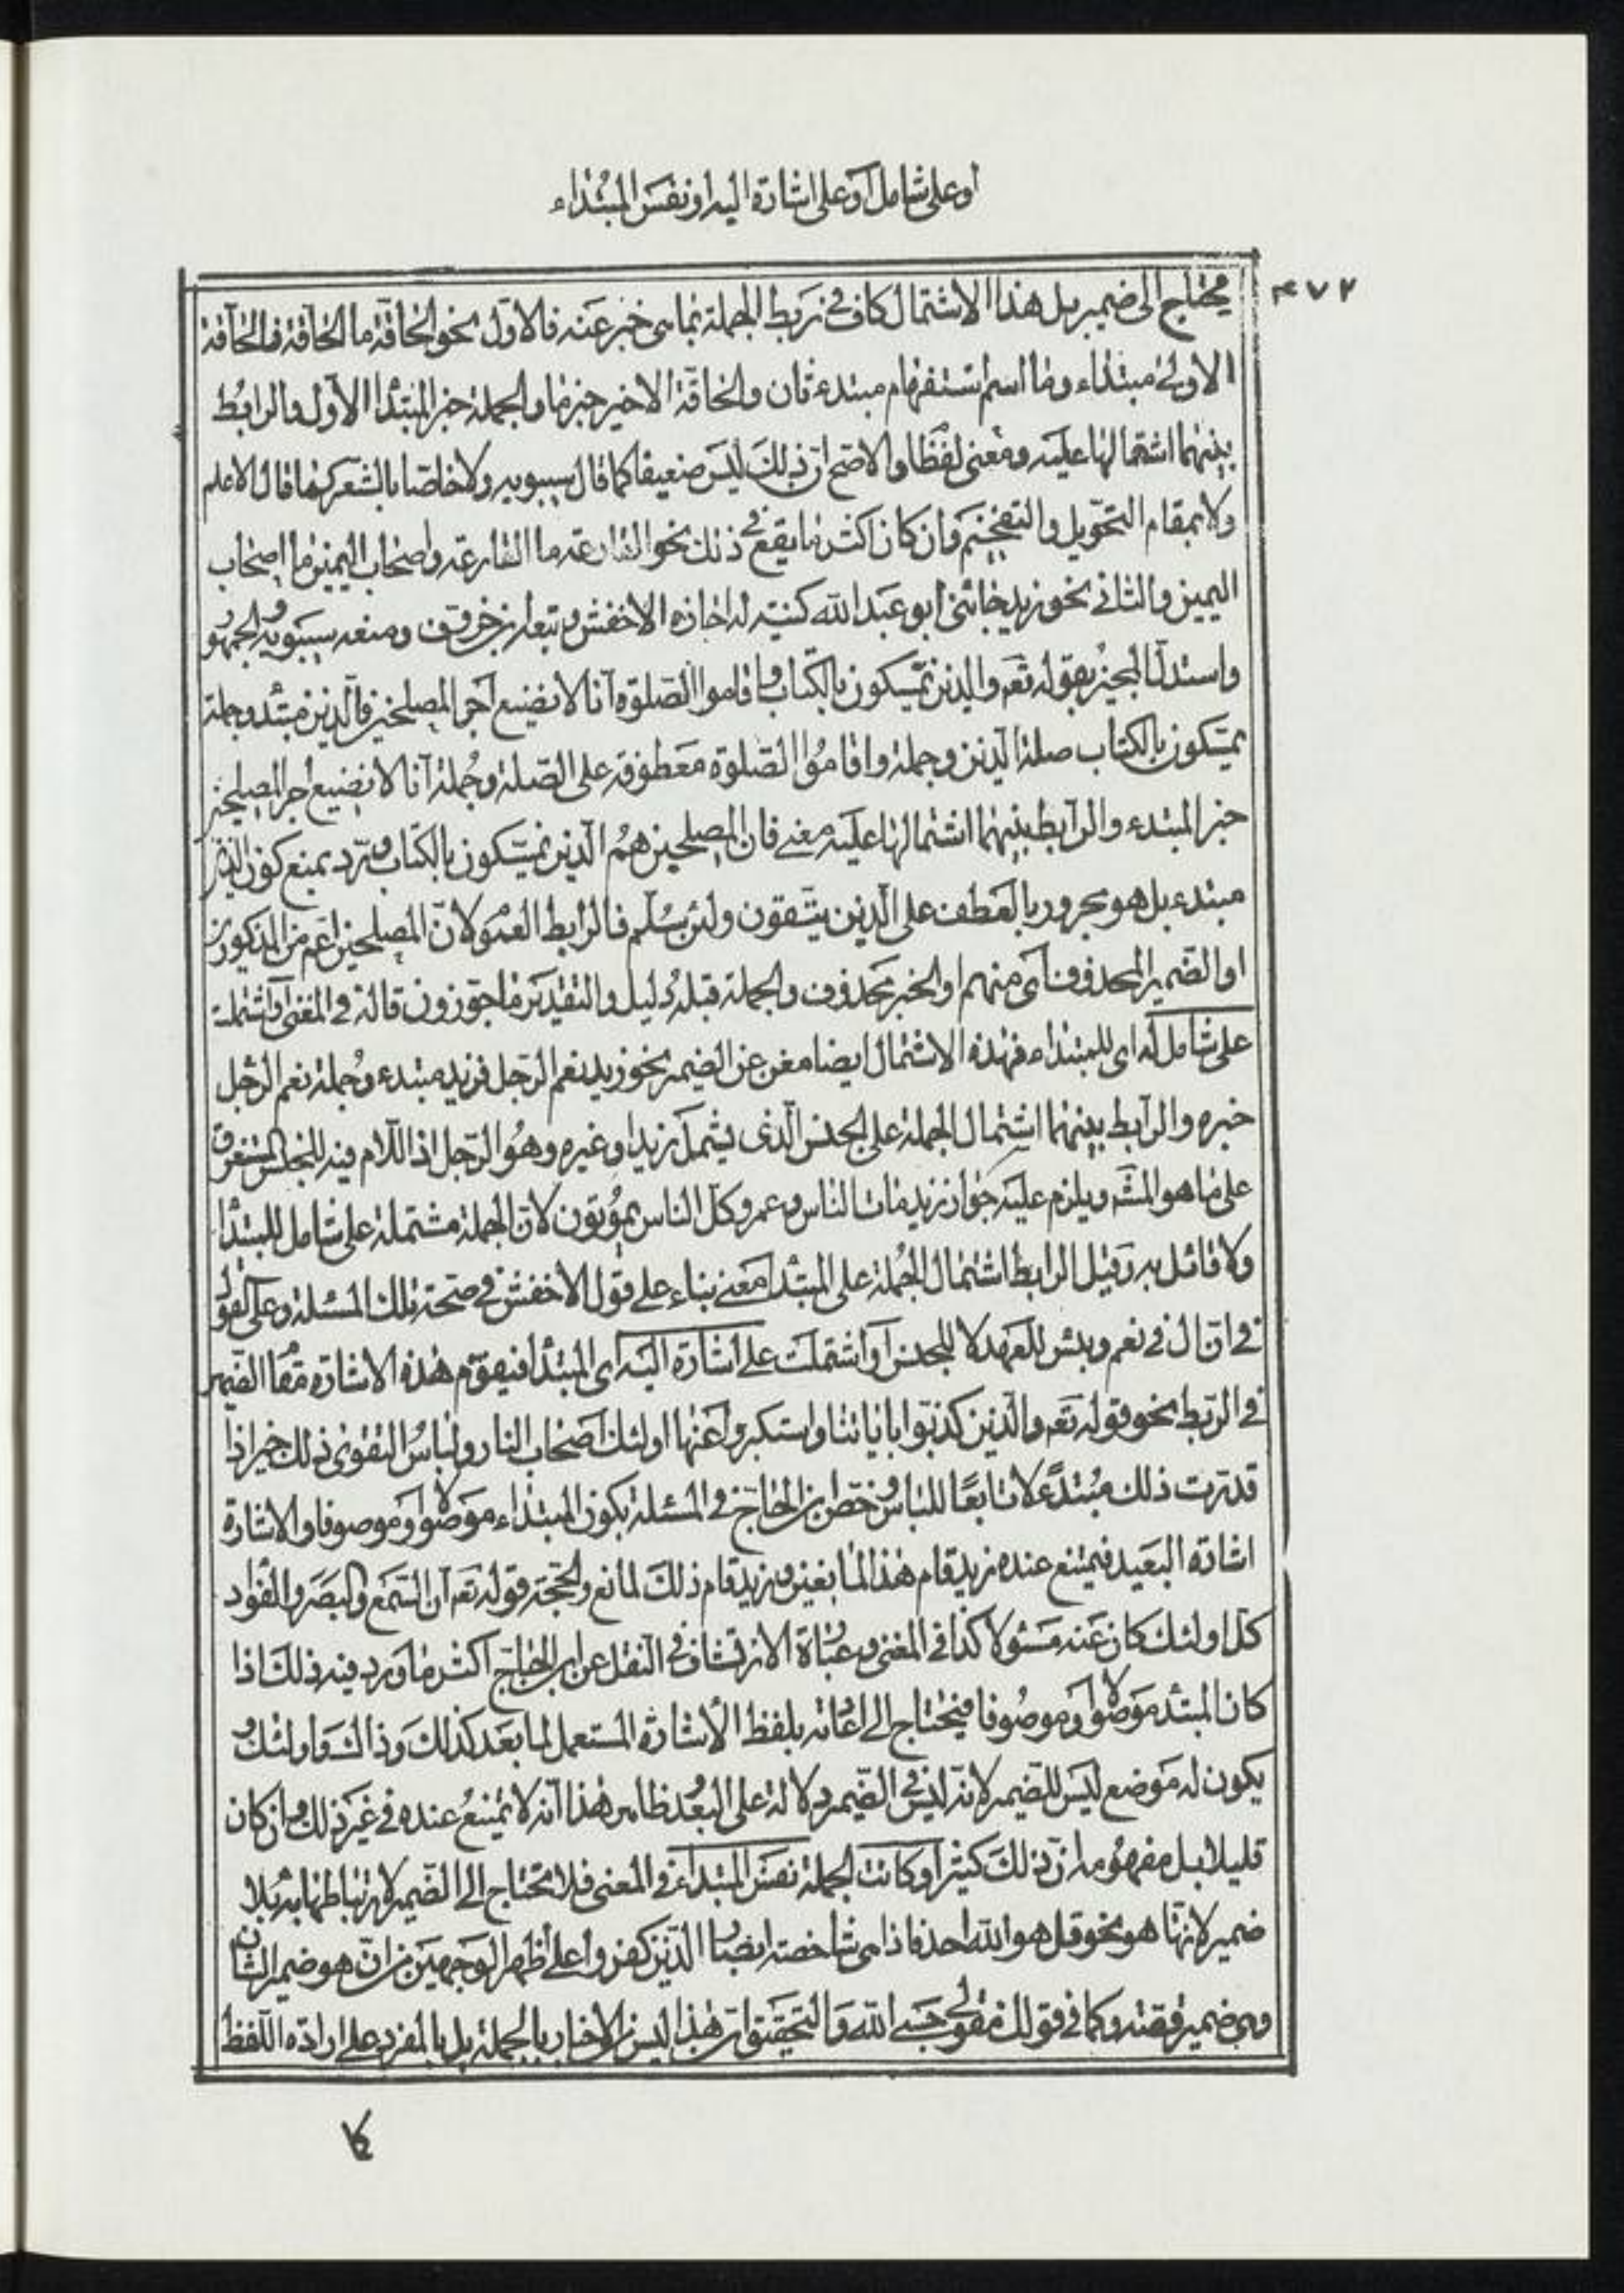 او على شامل او على اشارة اليه او نفس المبتداء
٤٧٢
يحتاج الى ضمير بل هذا الاشتمال كاف فى ربط الجملة بما هى خبر عنه فالاول نحو الحاقة ما الحاقة فالحاقة
الاولى مبتداء وما اسم استفهام مبتدء ثان والحاقة الاخير خبرها والجملة خبر المبتدأ الاول والرابط
بينهما اشتمالها عليه ومعنى لفظا والاصح ان ذلك ليس ضعيفا كما قال سيبويه ولا خاصا بالشعر كما قال الاعلم
ولا بمقام التحويل والتفخيم وان كان اكثر ما يقع فى ذلك نحو القارعة ما القارعة واصحاب اليمين ما اصحاب
اليمين والثانى نحو زيد جائنى ابو عبد الله كنيته له اجازه الاخفش وتبعه ابن خروف ومنعه سيبويه والجمهو
واستدل المجيز بقوله تعه والذين يمسكون بالكتاب واقاموا الصلوة انا لا نضيع اجر المصلحين فالذين مبتدء وجملة
يمسكون بالكتاب صلة الذين وجملة واقاموا الصلوة معطوفة على الصلة وجملة انا لا نضيع اجر المصلحين
خبر المبتدء والرابط بينهما اشتمالها عليه معنى فان المصلحين هم الذين يمسكون بالكتاب ويرد بمنع كون الذين
مبتدء بل هو مجرور بالعطف على الذين يتقون ولئن سلم فالرابط العمو لان المصلحين اعم من المذكورين
او الضمير المحذوف اى منهم او الخبر محذوف والجملة قبله دليل والتقدير ماجورون قاله فى المغنى او اشتملت
على شامل له اى للمبتداء فهذه الاشتمال ايضا مغن عن الضمير نحو زيد نعم الرجل فزيد مبتدء وجملة نعم الرجل
خبره والرابط بينهما اشتمال الجملة على الجنس الذى يشمل زيدا وغيره وهو الرجل اذ اللام فيه للجنس المستغرق
على ما هو المشه ويلزم عليه جواز زيد مات الناس وعمرو كل الناس يموتون لان الجملة مشتملة على شامل للمبتدأ
ولا قائل به وقيل الرابط اشتمال الجملة على المبتدا معنى بناء على قول الاخفش فى صحة تلك المسئلة وعلى القول
فى ان ال فى نعم وبئس للعهد لا للجنس او اشتملت على اشارة اليه اى المبتدأ فيقوم هذه الاشارة مقا الضمير
فى الربط نحو قوله تعه والذين كذبوا باياتنا واستكبروا عنها اولئك اصحاب النار ولباس التقوى ذلك خير اذا
قدرت ذلك مبتدءً لا تابعًا للباس وخص ابن الحاج فى المسئلة بكون المبتداء موصولا او موصوفا والاشارة
اشارة البعيد فيمتنع عنده زيد قام هذا لمانعين وزيد قام ذلك لمانع والحجة قوله تعه ان السمع والبصر والفواد
كل اولئك كان عنه مسئولا كذا فى المغنى وعبارة الارتشاف فى النقل عن ابن الحاج اكثر ما ورد فيه ذلك اذا
كان المبتد موصولا او موصوفا فيحتاج الى اعادته بلفظ الاشارة المستعمل لما بعد كذلك وذاك واولئك و
يكون له موضع ليس للضمير لانه ليس فى الضمير دلالة على البعد ظاهر هذا انه لا يمتنع عنده فى غير ذلك وان كان
قليلا بل مفهومه ان ذلك كثير او كانت الجملة نفس المبتداء فى المعنى فلا تحتاج الى الضمير لارتباطها به بلا
ضمير لانها هو نحو قل هو الله احد فاذا هى شاخصة ابصار الذين كفروا على اظهر الوجهين من ان هو ضمير الشان
وهى ضمير قصة وكما فى قولك مقولى حسبى الله والتحقيق ان هذا ليس الاخبار بالجملة بل بالمفرد على ارادة اللفظ
كا